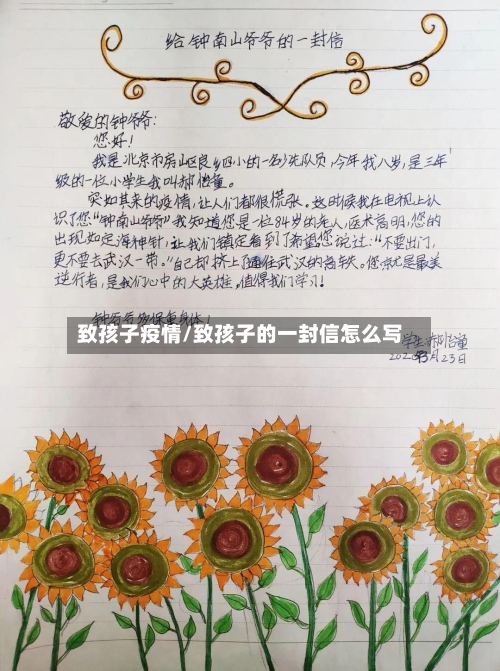 给钟南山爷爷的一封信
敬爱的钟爷爷:
您好!
我是北京市房山区良乡四小的一名少先队员,今年我八岁,是三年
级的一位小学生我叫郝佁童。
突如其来的疫情,让人们都很慌张。这时候我在电视上认
识了您“钟南山爷爷”我知道您是一位84岁的老人,医术高明,您的
出现如定海神针,让我们镇定看到了希望您说过:“不要出门,
更不要去武汉一带。”自己却挤上了通往武汉的高铁。您就是最美
逆行者,是我们心中的大英雄,值得我们学习!
钟爷爷多保重身体!
致孩子疫情/致孩子的一封信怎么写
学生:郝佁童
2020年3月23日